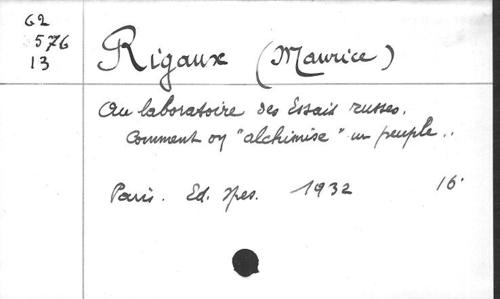 62
576
13
Rigaux (Maurice)
Au laboratoire des Essais russes.
Comment on "alchimise" un peuple..
Paris. Ed. Spes. 1932 16°